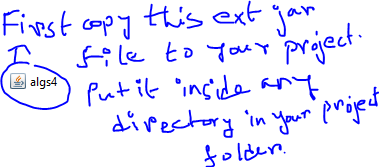 First copy this ext jar
file to your project.
algs4
Put it inside any
directory in your project
folder.